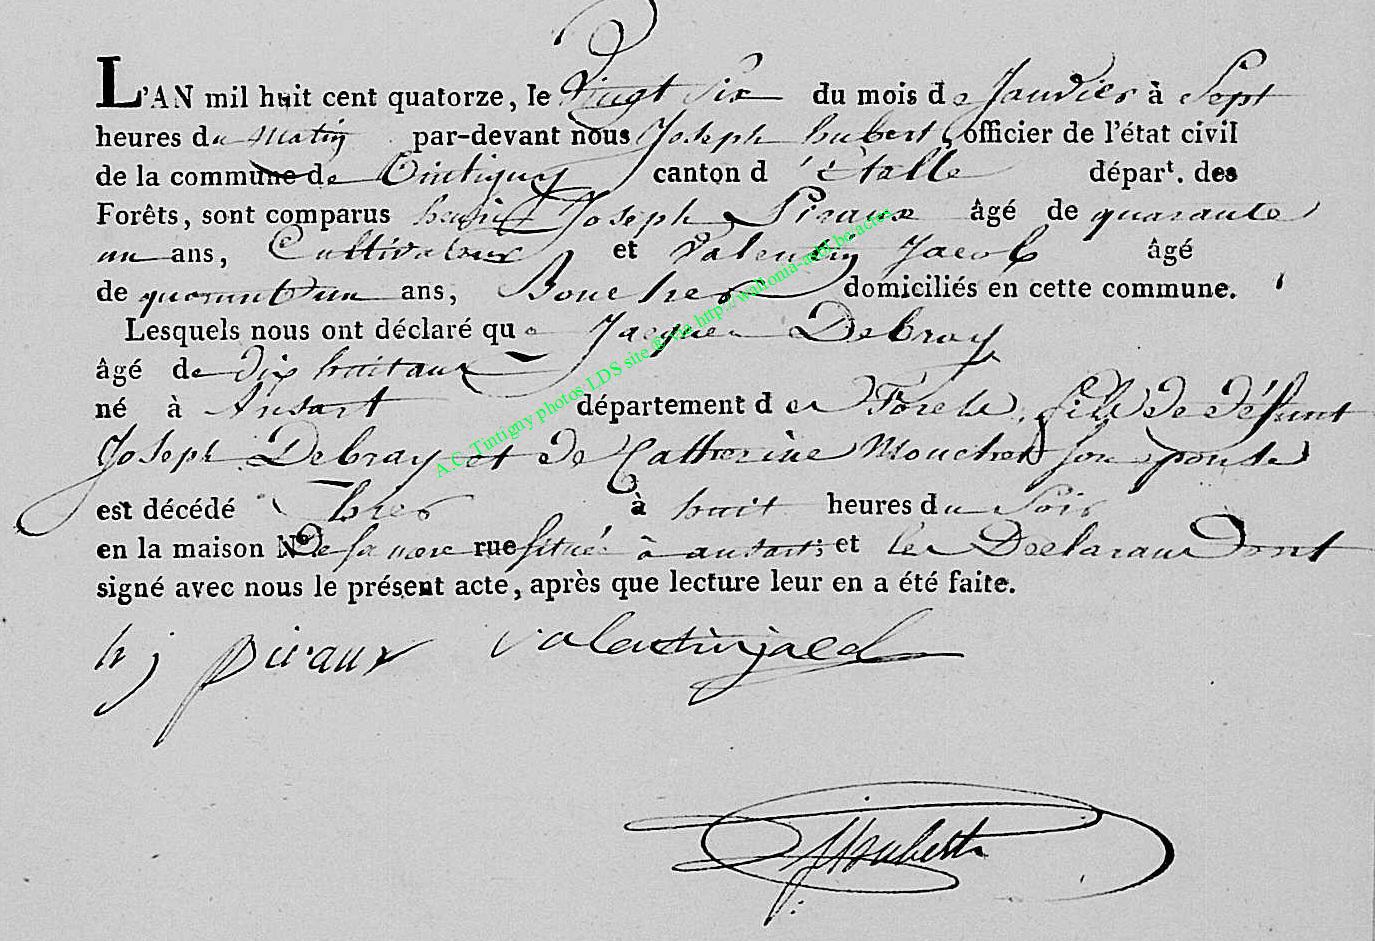 L'AN mil huit cent quatorze, le Vingt Six du mois de Janvier à Sept
heures du matin par-devant nous Joseph hubert, officier de l'état civil
de la commune de Tintigny canton d'étalle départ. des
Forêts, sont comparus henri Joseph Piraux âgé de quarante
un ans, Cultivateur et Valentin Jacob âgé
de quarant un ans, Boucher domiciliés en cette commune.
Lesquels nous ont déclaré que Jacques Debray
âgé de dix huit ans
né à Ansart département des Forets, fils de défunt
Joseph Debray et de Catherine Mouchet son epouse
est décédé hier à huit heures du Soir
en la maison No de sa mere rue située à ansart; et les Declarans ont
signé avec nous le présent acte, après que lecture leur en a été faite.
hj piraux valentin jacob
JHubert
A.C. Tintigny photos LDS site @ via http://wallonia-asbl.be/actes